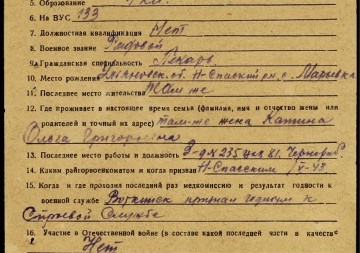 5. Образование 4 кл.
На ВУС 133
7. Должностная квалификация Нет
8. Военное звание Рядовой
9. Гражданская специальность Пекарь
10. Место рождения Ульяновск. об. Н-Спасский р-н с. Марьевка
11. Последнее место жительства Там же
12. Где проживает в настоящее время семья (фамилия, имя и отчество жены или
родителей и точный их адрес) там-же жена Катина
Ольга Григорьевна
13. Последнее место работы и должность З-д № 235
14. Каким райгорвоенкоматом и когда призван Н-Спасским V-43
15. Когда и где проходил последний раз медкомиссию и результат годности к
военной службе Воткинск признан годным к
строевой службе
16. Участие в Отечественной войне (в составе какой последней части в качестве
Нет